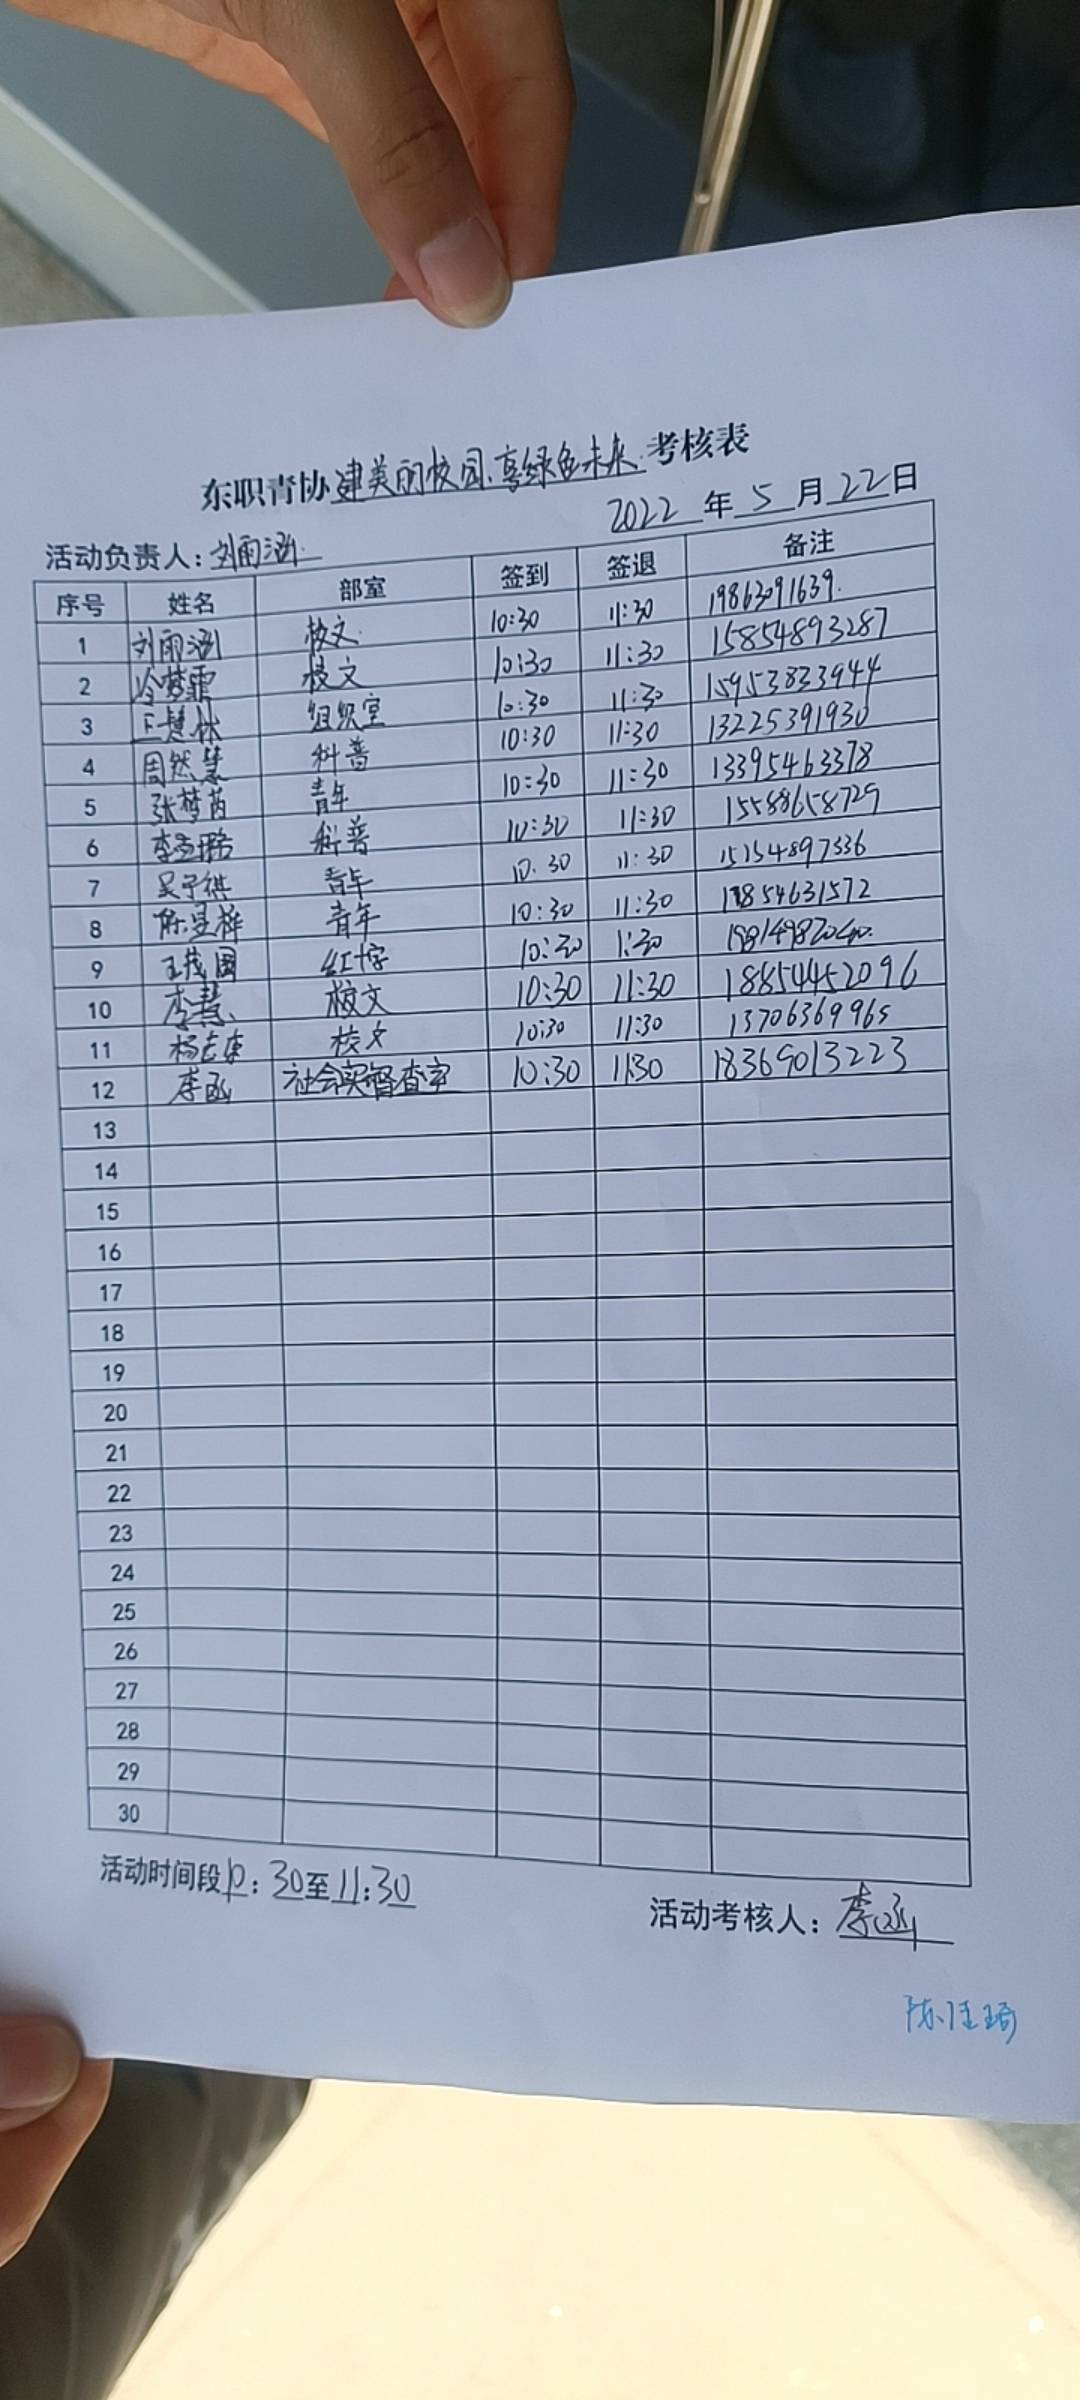 东职青协建美丽校园、享绿色未来考核表
2022年5月22日
活动负责人:刘雨涵
序号 姓名 部室 签到 签退 备注
1 刘雨涵 校文 10:30 11:30 19863091639
2 冷梦霏 校文 10:30 11:30 15854893287
3 王慧林 组织室 10:30 11:30 15953833944
4 周然慧 科普 10:30 11:30 13225391930
5 张梦芮 青年 10:30 11:30 13395463378
6 科普 10:30 11:30 15588658729
7 吴予祺 青年 10:30 11:30 15154897336
8 陈昱桦 青年 10:30 11:30
9 王茂国 红十字 10:30 1:30
10 李慧 校文 10:30 11:30 18854452096
11 校文 10:30 11:30 13706369965
12 李函 社会实督查室 10:30 11:30 18369013223
13
14
15
16
17
18
19
20
21
22
23
24
25
26
27
28
29
30
活动时间段10:30至11:30
活动考核人:李函
陈佳琦